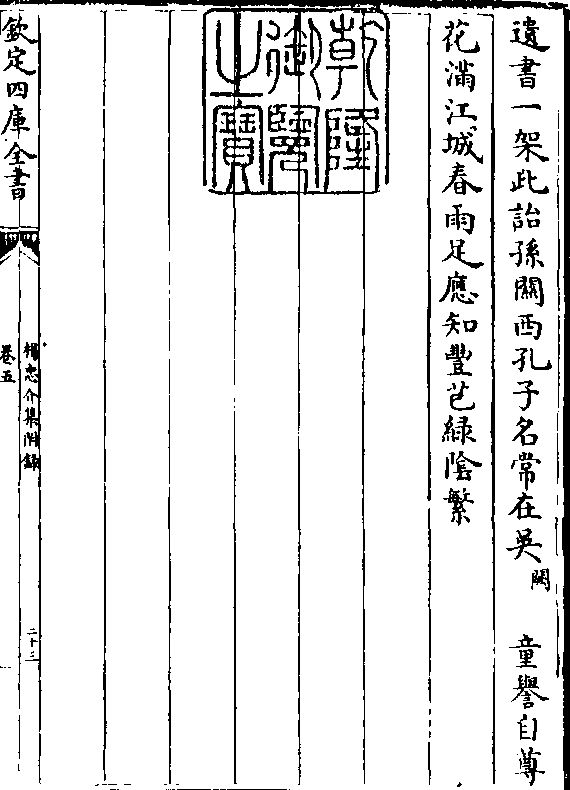 遺書一架此詒孫關西孔子名常在吳闕童譽自尊
花滿江城春雨足應知豐芑緑陰繁
乾隆御覽之寶
欽定四庫全書
楊忠介集附錄
卷五
二十三